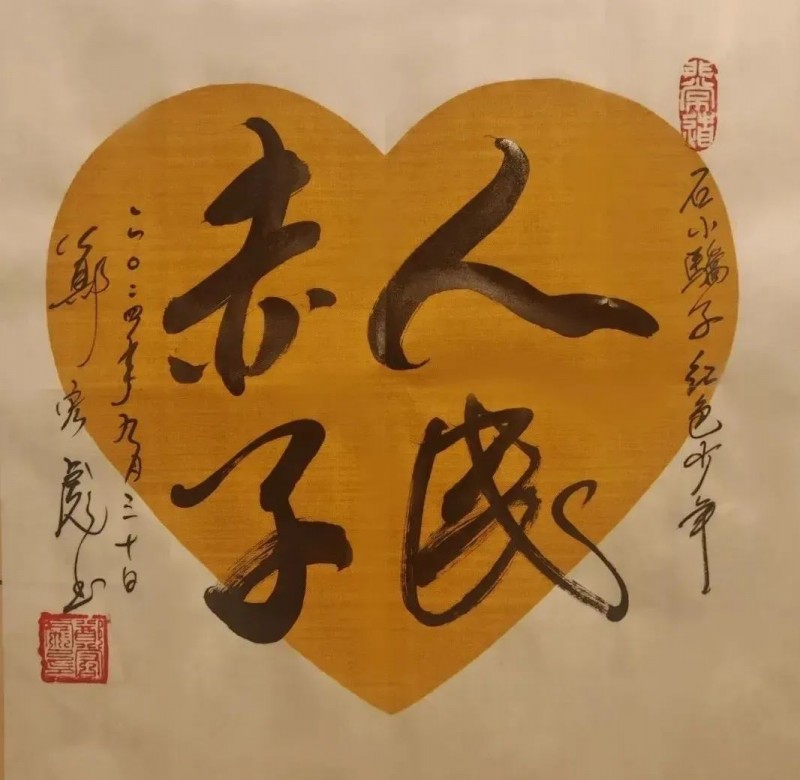 人民
赤子
石小骄子 红色少年
二〇二四年九月三十日
郑宏彪书
非常道